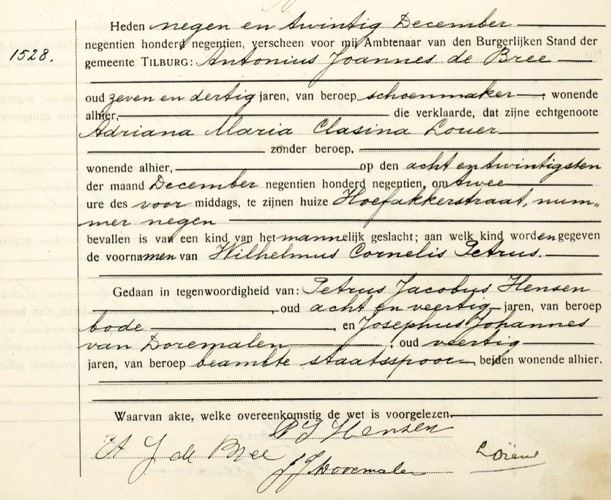 Heden negen en twintig December
1528.
negentien honderd negentien, verscheen voor mij Ambtenaar van den Burgerlijken Stand der
gemeente TILBURG: Antonius Joannes de Bree
oud zeven en dertig jaren, van beroep schoenmaker, wonende
alhier, die verklaarde, dat zijne echtgenoote
Adriana Maria Clasina Louer
zonder beroep,
wonende alhier, op den acht en twintigsten
der maand December negentien honderd negentien, om twee
ure des voor middags, te zijnen huize Hoefakkerstraat, num-
mer negen
bevallen is van een kind van het mannelijk geslacht; aan welk kind worden gegeven
de voornamen van Wilhelmus Cornelis Petrus.
Gedaan in tegenwoordigheid van: Petrus Jacobus Hensen
, oud acht en veertig jaren, van beroep
bode, en Josephus Johannes
van Doremalen, oud veertig
jaren, van beroep beambte staatsspoor, beiden wonende alhier.
Waarvan akte, welke overeenkomstig de wet is voorgelezen.
P J Hensen
A J de Bree
J J v Doremalen